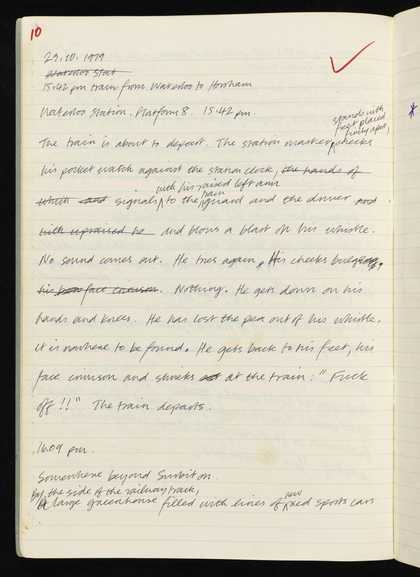 10
29.10.1979
Waterloo Stat
15.42 pm train from Waterloo to Horsham
Waterloo Station. Platform 8. 15.42 pm.
stands with
feet placed
firmly apart,
The train is about to depart. The station master checks
his pocket watch against the station clock, the hands of
with his raised left arm
train
which and signals to the guard and the driver and
with upraised he and blows a blast on his whistle.
No sound comes out. He tries again, His cheeks bulging,
his face crimson. Nothing. He gets down on his
hands and knees. He has lost the pea out of his whistle.
it is nowhere to be found. He gets back to his feet, his
face crimson and shrieks at the train: "Fuck
off!!" The train departs.
16.09 pm.
Somewhere beyond Surbiton.
by the side of the railway track,
new
A large greenhouse filled with lines of red sports cars